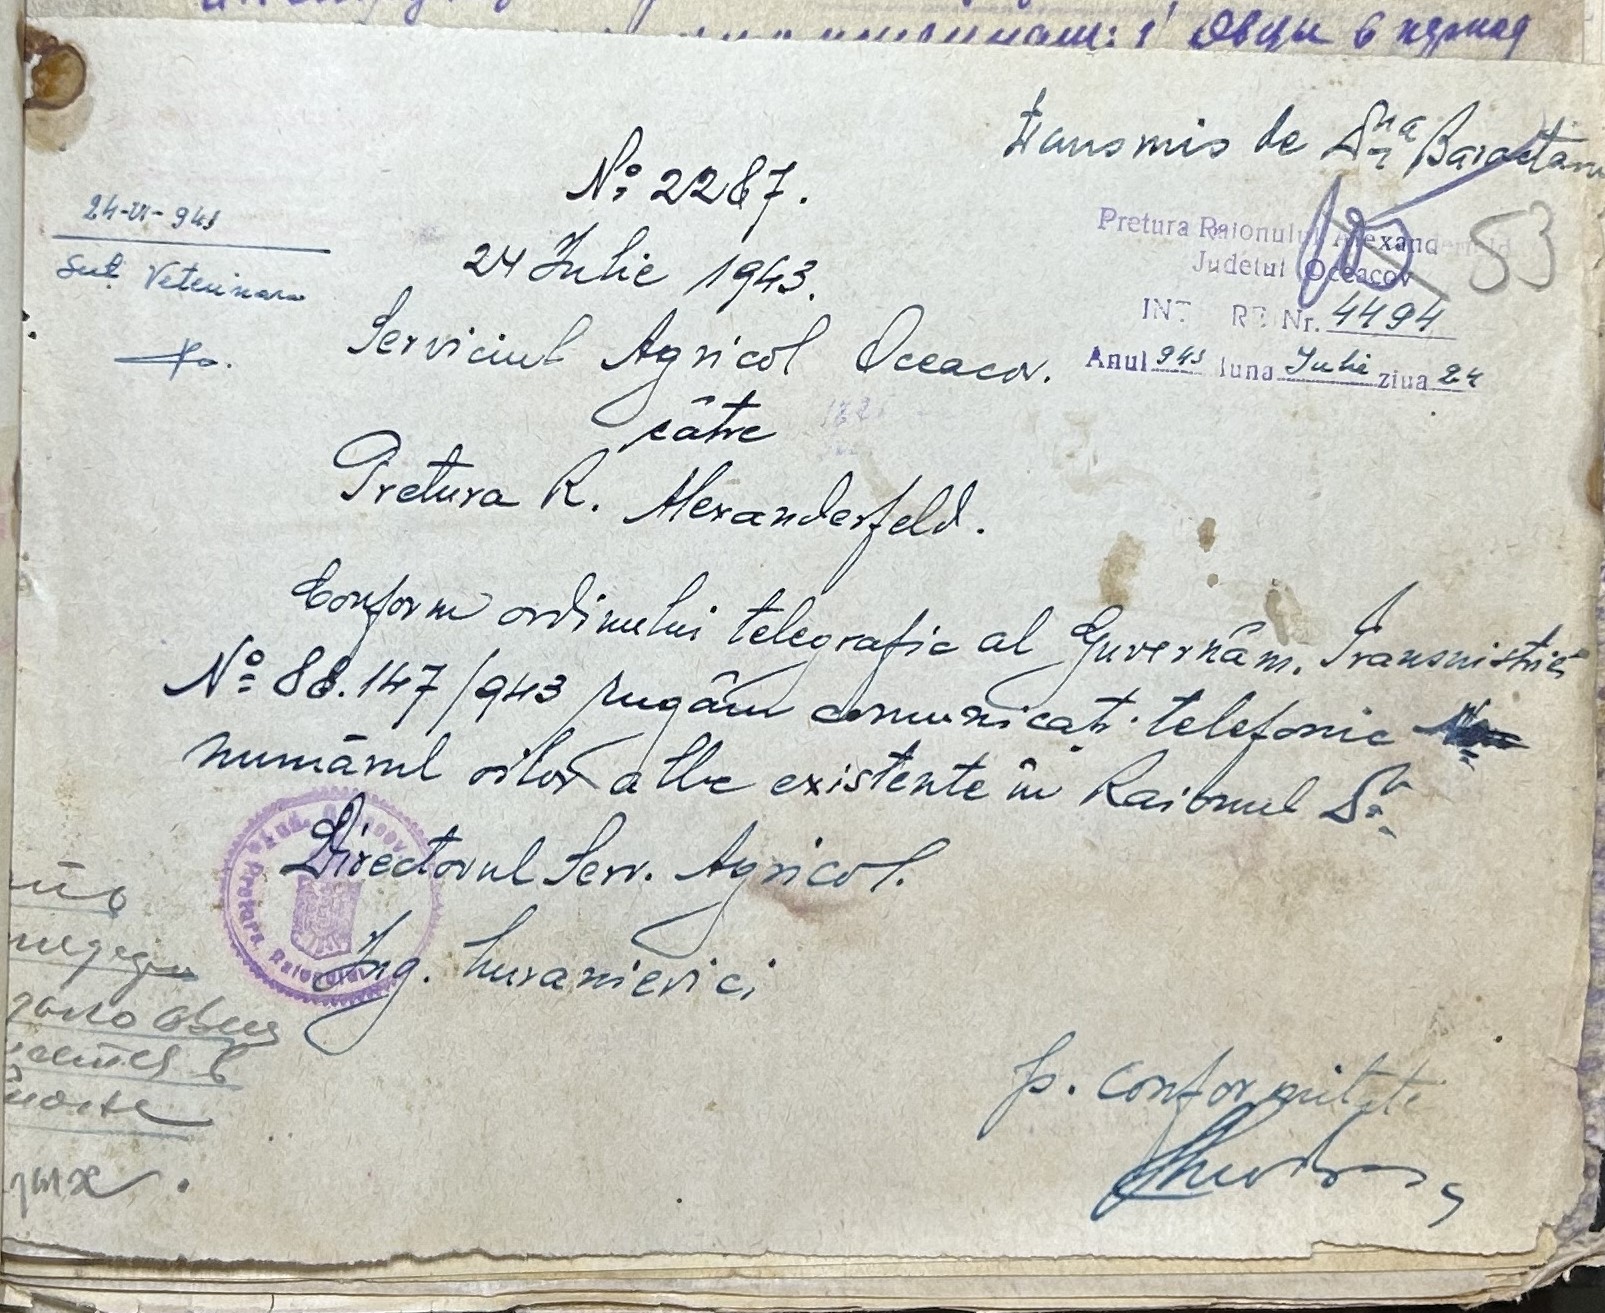 Овцы в период
transmis de D-na Baractaru
№ 2287.
24 Iulie 1943.
24-VI-943
Suß Veterinara
Pretura Raionului Alexanderfeld
Județul Oceacov
53
INT RE Nr. 4494
Anul 943 luna Iulie ziua 24
Serviciul Agricol Oceacov.
către
Pretura R. Alexanderfeld.
Conform ordinului telegrafic al Guvernăm. Transnistriei
№ 88.147/943 rugăm comunicați telefonic
numărul oilor albe existente în Raionul Dv.
Directorul Serv. Agricol.
Ing. Luranievici
Pretura Raionului
p. conformitate